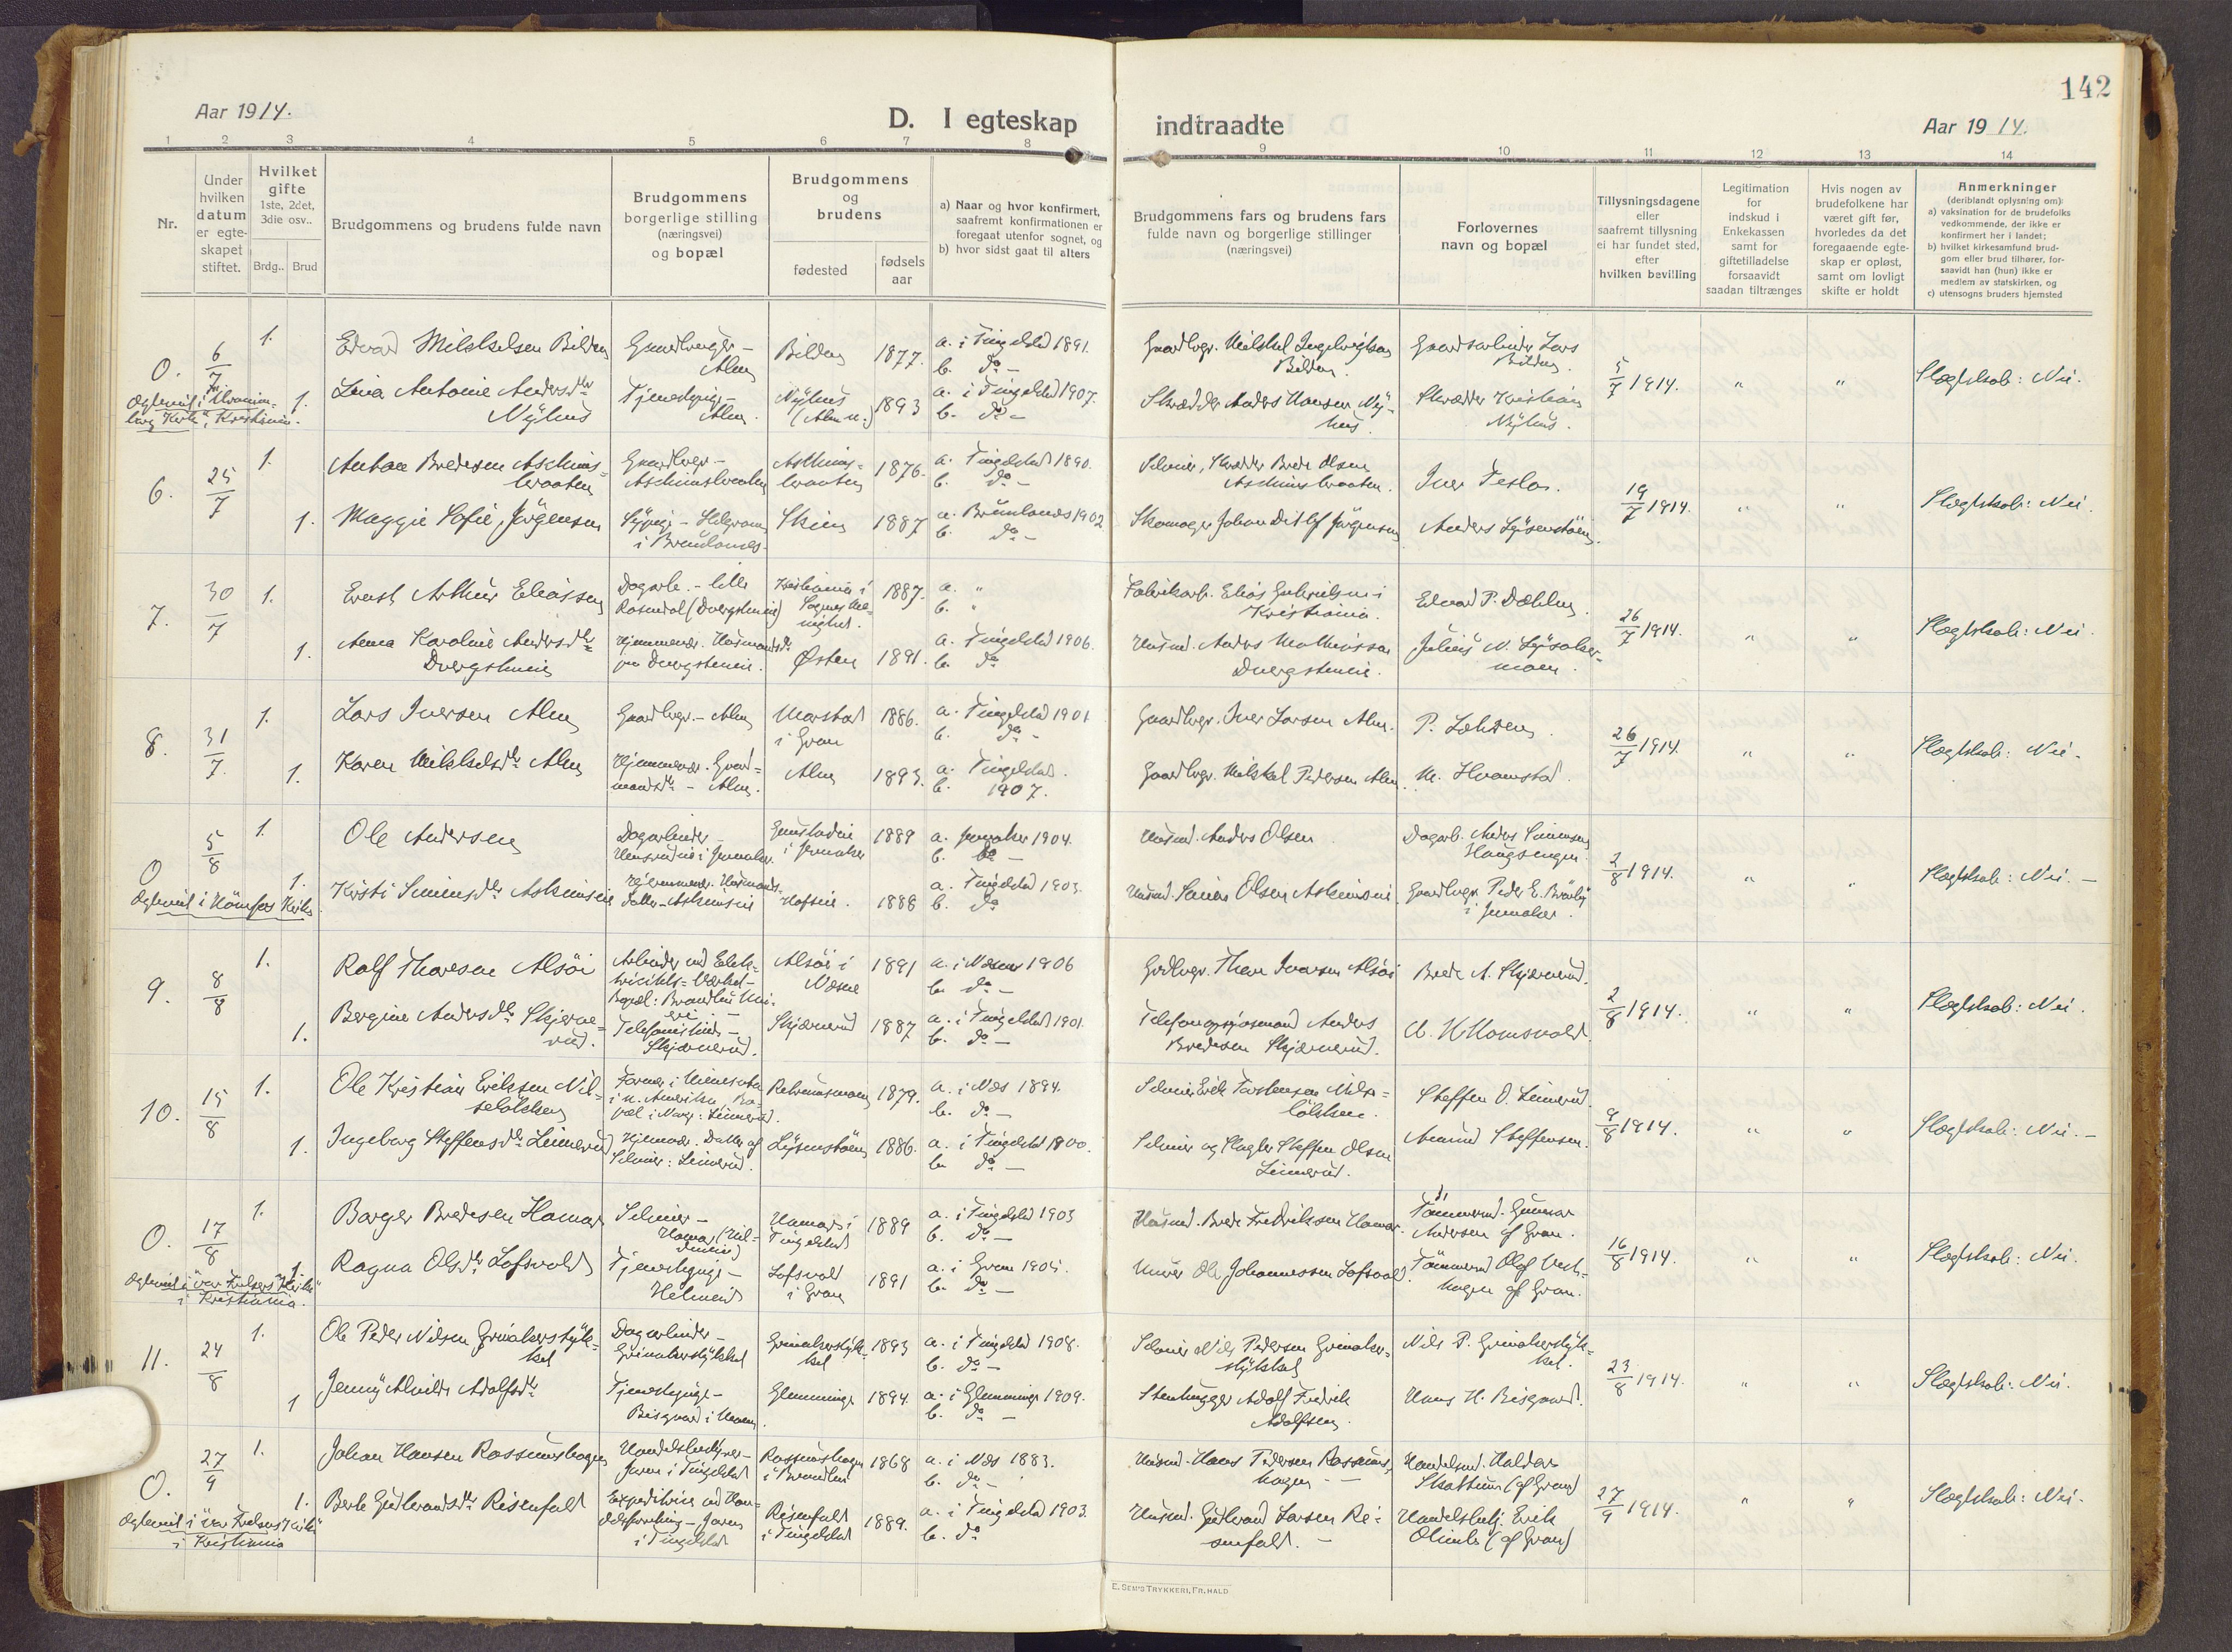 142
Aar 1914.
D. I egteskap indtraadte
Aar 1914.
1 2 3 4 5 6 7 8 9 10 11 12 13 14
Nr.
Under hvilken datum er egteskapet stiftet.
Hvilket gifte 1ste, 2det, 3die osv..
Brdg.. Brud
Brudgommens og brudens fulde navn
Brudgommens borgerlige stilling (næringsvei) og bopæl
Brudgommens og brudens
fødested
fødsels aar
a) Naar og hvor konfirmert, saafremt konfirmationen er foregaat utenfor sognet, og
b) hvor sidst gaat til alters
Brudgommens fars og brudens fars fulde navn og borgerlige stillinger (næringsvei)
Forlovernes navn og bopæl
Tillysningsdagene eller saafremt tillysning ei har fundet sted, efter hvilken bevilling
Legitimation for indskud i Enkekassen samt for giftetilladelse forsaavidt saadan tiltrænges
Hvis nogen av brudefolkene har været gift før, hvorledes da det foregaaende egteskap er opløst, samt om lovligt skifte er holdt
Anmerkninger
(deriblandt oplysning om:
a) vaksination for de brudefolks vedkommende, der ikke er konfirmert her i landet;
b) hvilket kirkesamfund brudgom eller brud tilhører, forsaavidt han (hun) ikke er medlem av statskirken, og
c) utensogns bruders hjemsted
O. 6/7 1. Edvard Mikkelsen Bilden Gaardbruger - Alm Bilden 1877. a. i Tingelstad 1891. b. do - Gaardbrgr. Mikkel Ingebrigtsen Bilden. Gaardsarbeider Lars Bilden. 5/7 1914. " " Slægtskab: Nei.
1. Lina Antonie Andersdtr Nyhus Tjenestepige - Alm. Nyhus (Alm u.) 1893 a. i Tingelstad 1907. b. do - Skrædder Anders Hansen Nyhus. Skrædder Kristian Nyhus.
Kristiania.
6. 25/7 1. Anton Bredesen Aschimsbraaten Gaardbrgr - Aschimsbraaten Aschimsbraaten 1876. a. Tingelstad 1890. b. do - Selveier, Skrædder Brede Olsen Aschimsbraaten. Iver Teslo. 19/7 1914. " " Slægtskab: Nei.
1. Maggie Sofie Jørgensen Sypige - i Brunlanes. Skien 1887 a. Brunlanes 1902 b. do - Skomager Johan Ditlef Jørgensen Anders Lysenstøen.
7. 30/7 1. Ernst Arthur Eliassen Dagarb. - lille Rosendal (Dvergstenen) Kristiania i Sagenes Menighed. 1887. a. " b. " Fabrikarb. Elias Gabrielsen i Kristiania. Edvard P. Dæhlen. 26/7 1914. " " Slægtskab: Nei.
1. Anna Karoline Andersdtr Dvergstenen Hjemmevær. Husmandsdtr fra Dvergstenen. Østen 1891. a. Tingelstad 1906. b. do Husmd. Anders Mathiassen Dvergstenen. Julius N. Lysakermoen.
8. 31/7. 1. Lars Iversen Alm Gaardbrgr. - Alm Marstad i Gran 1886. a. Tingelstad 1901 b. do - Gaardbrgr. Iver Larsen Alm. P. Lahren. 26/7 1914. " " Slægtskab: Nei.
1. Karen Mikkelsdtr Alm Hjemmevær. Gaardmandsdtr - Alm. Alm 1893. a. Tingelstad. b. 1907. Gaardbrgr. Mikkel Pedersen Alm. M. Hvamstad.
O 5/8 1. Ole Andersen Dagarbeider - i Jevnaker. i Jevnaker 1889 a. Jevnaker 1904. b. do - Husmd. Anders Olsen Dagarb. Anders Simensen Haugsengen. 2/8 1914. " " Slægtskab: Nei. -
1. Kirsti Simensdtr Askimseie Hjemmevær. Husmandsdatter - Askimseie Hofseie. 1888 a. Tingelstad 1903. b. do Husmd. Simen Olsen Askimseie Gaardbrgr. Peder E. Bråby i Jevnaker.
Ægteviet i Hønefos Kirke.
9. 8/8 1. Ralf Thoresen Alsøi Arbeider ved Elektricitets-Værket - Bopæl: Brandbu Alsøi i Næsne 1891 a. i Næsne 1906 b. do - Grdbrgr. Thore Ivarsen Alsøi Brede A. Skjærverud. 2/8 1914. " " Slægtskab: Nei.
1. Bergine Andersdtr Skjerverud. Telefonistinde - Skjærverud. Skjærverud 1887 a. i Tingelstad 1901. b. do - Telefonopsynsmand Anders Bredesen Skjærverud.
10. 15/8 1. Ole Kristian Eriksen Farmer i Minnesota i N. Amerika. Bopæl i Norge: Linnerud. 1879. a. i Næs 1894. b. do - Selveier Erik Torstensen Steffen O. Linnerud. 9/8 1914. " " Slægtskab: Nei. -
1. Ingeborg Steffensdtr Linnerud Hjemvær. Datter af Selveier: Linnerud. Lysenstøen 1886. a. i Tingelstad 1900. b. do - Selveier og Slagter Steffen Olsen Linnerud. Amund Steffensen.
O. 17/8 1. Borger Bredesen Hamar Selveier - Hamar Hamar i Tingelstad 1889 a. i Tingelstad 1903 b. do - Husmd. Brede Fredriksen Hamar. Tømmermd. Gunnar Andersen af Gran. 16/8 1914. " " Slægtskab: Nei.
1. Ragna Olsdtr Lofsvold Tjenestepige - Helmeid Lofsvold i Gran 1891 a. i Gran 1905. b. do - Murer Ole Johannessen Lofsvold. Tømmermd Olaf af Gran.
Ægteviet i "Vor Frelsers Kirke" i Kristiania.
11. 24/8 1. Ole Peder Nilsen Grinakerstykket Dagarbeider - Grinakerstykket Grinakerstykket 1893 a. i Tingelstad 1908. b. do - Selveier Nils Pedersen Grinakerstykket Nils P. Grinakerstykket. 23/8 1914. " " Slægtskab: Nei.
1 Jenny Alvilde Adolfsdtr Tjenestepige - Bisgaard i Moen. Glemminge 1894. a. i Glemminge 1909. b. do - Stenhugger Adolf Fredrik Adolfsen. Hans H. Bisgaard.
O. 27/9 1. Johan Hansen Rossumshagen Handelsbestyrer - Jaren i Tingelstad Rossumshagen i Brandbu 1868 a. i Næs 1883. b. do - Husmd. Hans Pedersen Rossumshagen - Handelsmd. Haldor Skattum (af Gran) 27/9 1914. " " Slægtskab: Nei.
1. Berte Gudbrandsdtr Risenfald Expeditrice ved Handelsforretning - Jaren i Tingelstad Risenfald i Tingelstad 1889. a. i Tingelstad 1903. b. do Husmd. Gudbrand Larsen Risenfald. - Handelsbetj. Erik Olimb (af Gran)
Ægteviet i "Vor Frelsers Kirke" i Kristiania
E. SEM'S TRYKKERI, FR.HALD